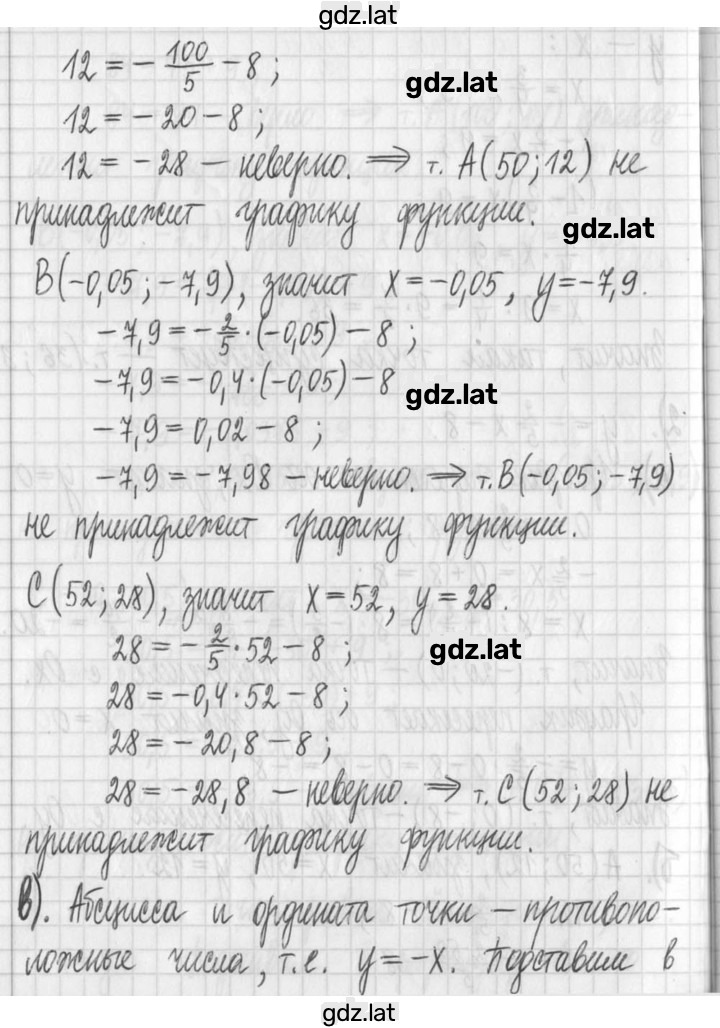 gdz.lat
12 = - 100/5 - 8 ;
gdz.lat
12 = - 20 - 8 ;
12 = - 28 - неверно. ⟹ т. A(50; 12) не
принадлежит графику функции.
gdz.lat
B(-0,05 ; -7,9), значит x = -0,05, y = -7,9.
-7,9 = - 2/5 · (-0,05) - 8 ;
-7,9 = -0,4 · (-0,05) - 8
gdz.lat
-7,9 = 0,02 - 8 ;
-7,9 = -7,98 - неверно. ⟹ т. B(-0,05; -7,9)
не принадлежит графику функции.
C(52; 28), значит x = 52, y = 28.
28 = - 2/5 · 52 - 8 ;
gdz.lat
28 = -0,4 · 52 - 8 ;
28 = - 20,8 - 8 ;
28 = -28,8 - неверно. ⟹ т. C(52; 28) не
принадлежит графику функции.
в). Абсцисса и ордината точки - противопо-
ложные числа, т.е. y = -x. Подставим в
gdz.lat